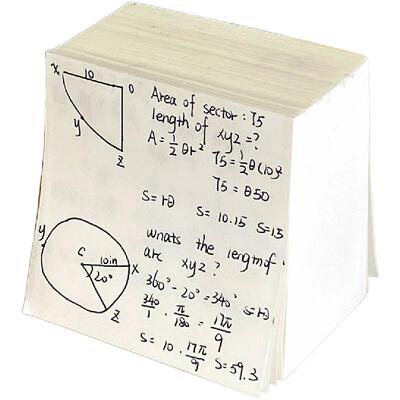 x 10 o
y
z
Area of sector : 75
length of xyz = ?
A = ½ θr²
75 = ½ θ(10)²
75 = θ50
S = rθ S = 10.15 S = 15
y
C 10in x
20°
z
whats the length of
arc xyz ?
360° - 20° = 340° S = rθ
340/1 · π/180 = 17π/9
S = 10 · 17π/9 S = 59.3